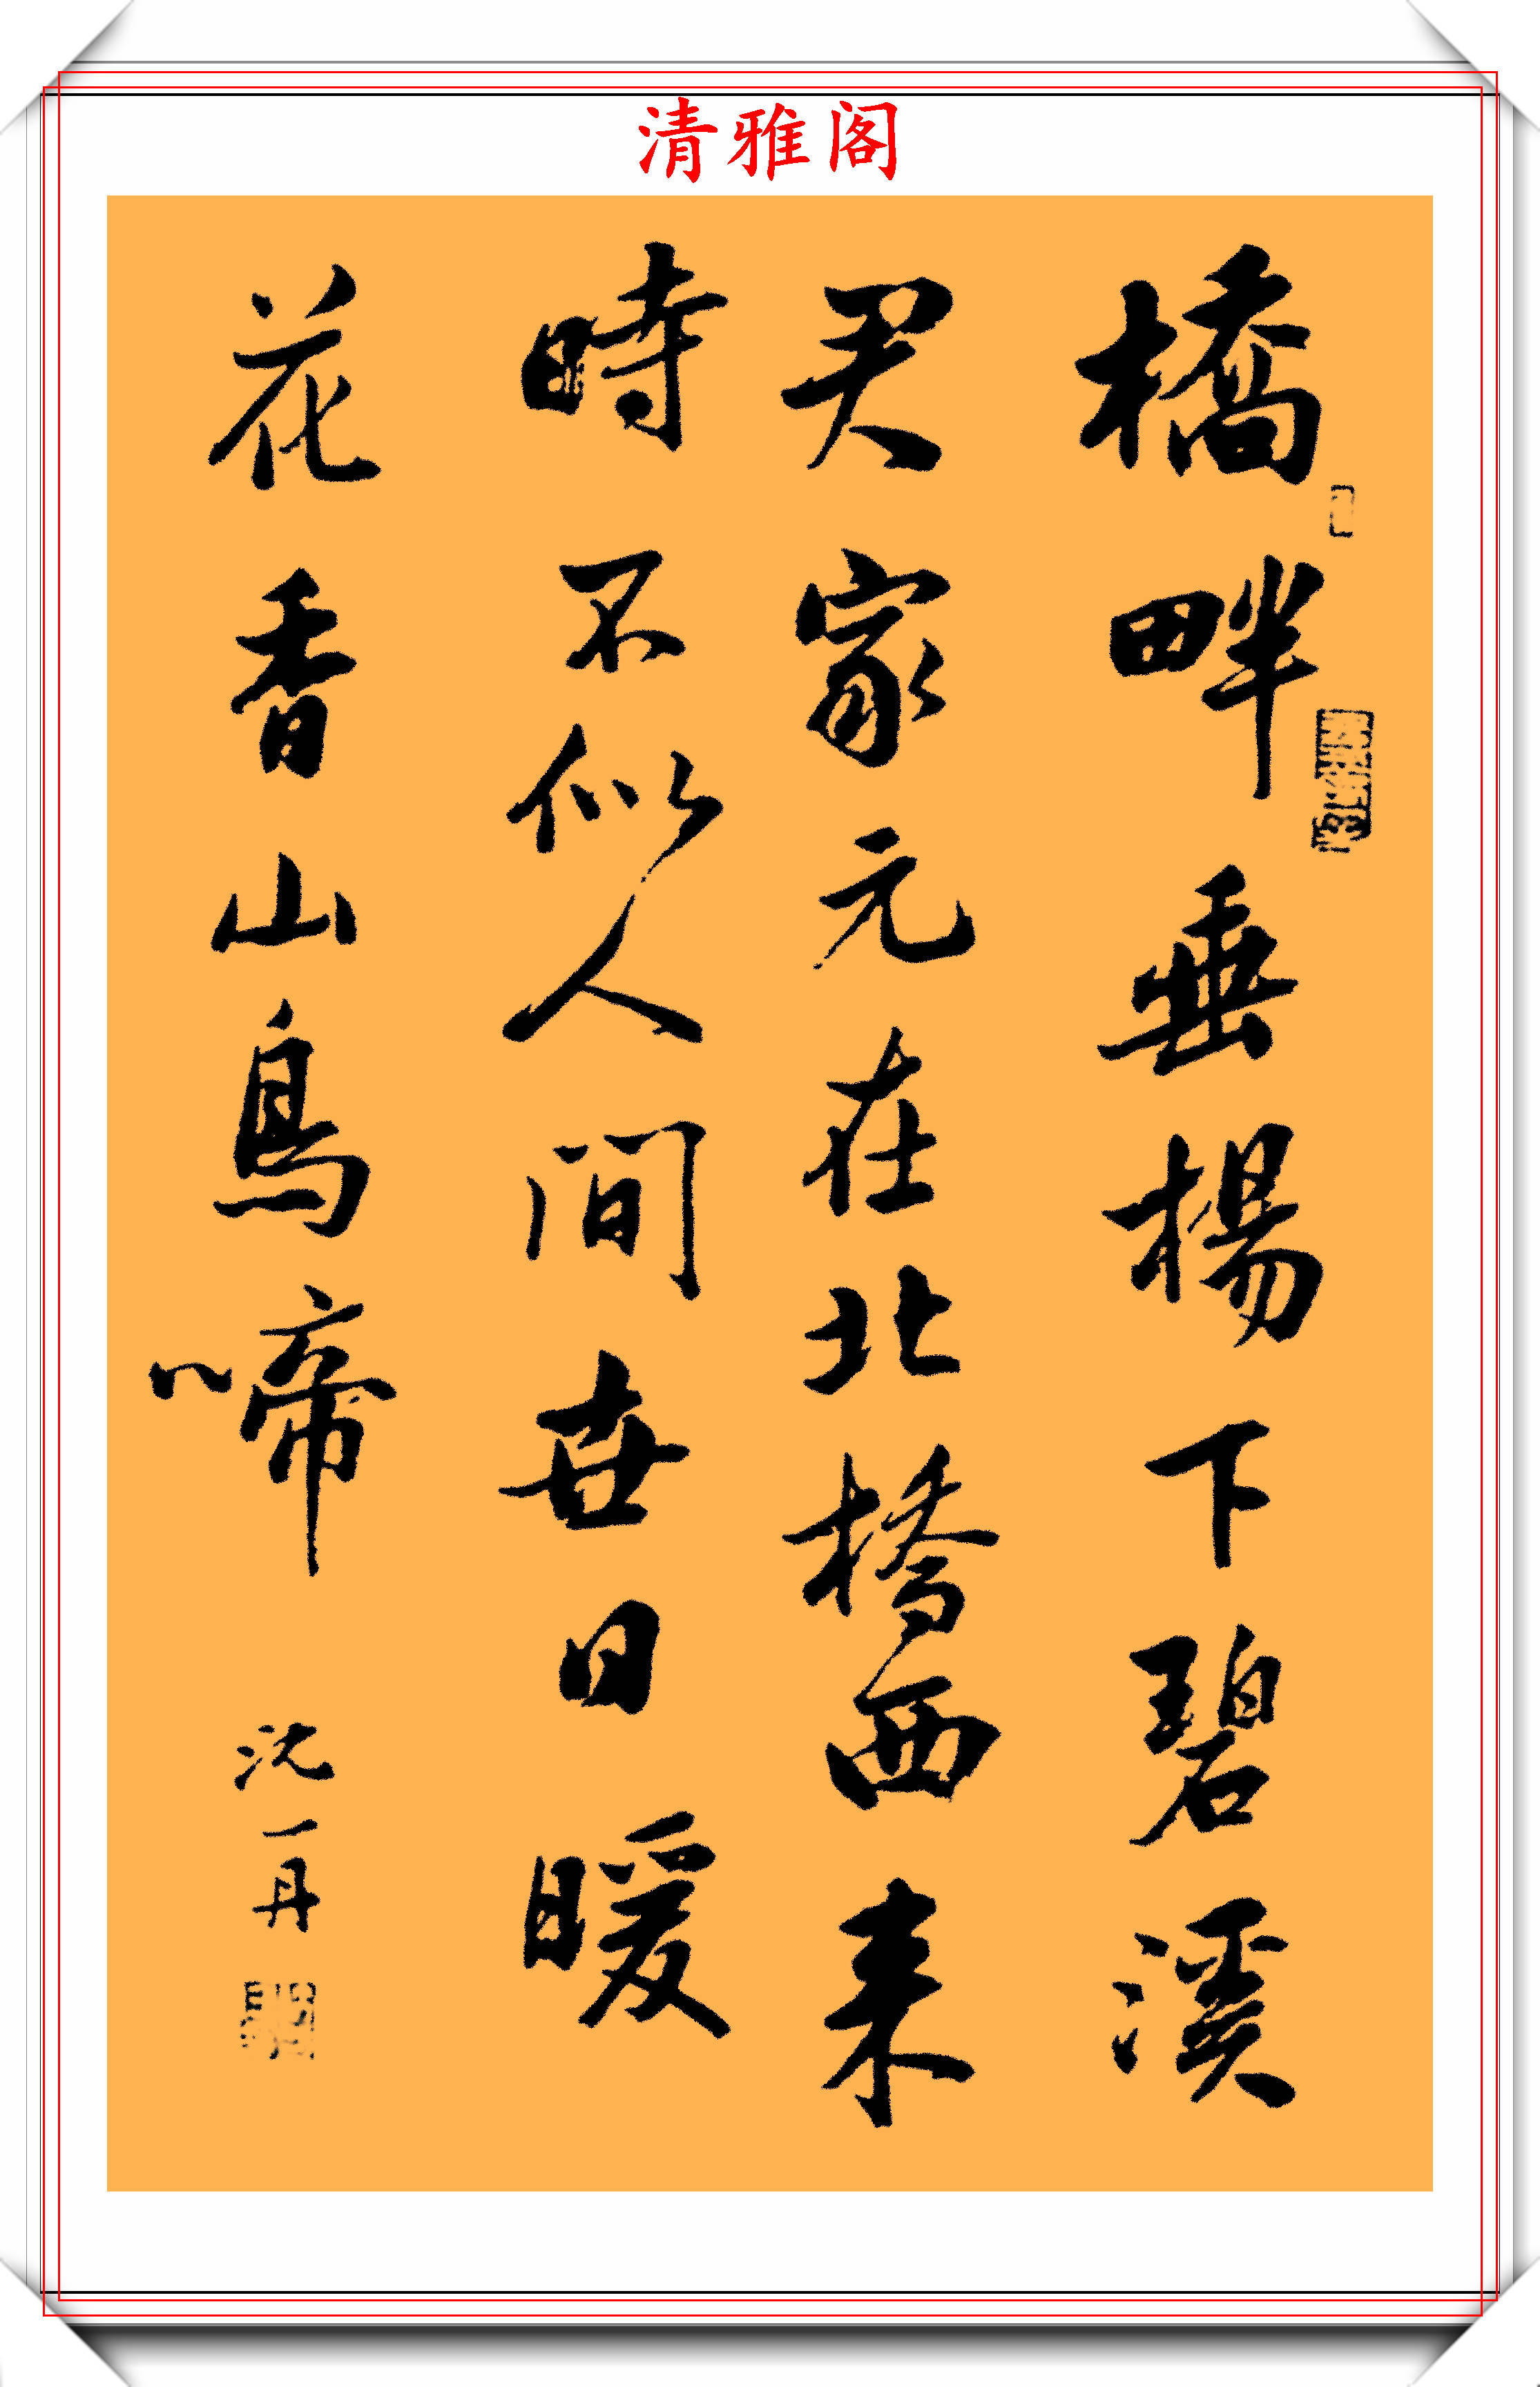 清雅阁
橋畔垂楊下碧溪
君家元在北橋西来
時不似人間世日暖
花香山鳥啼
沈一丹